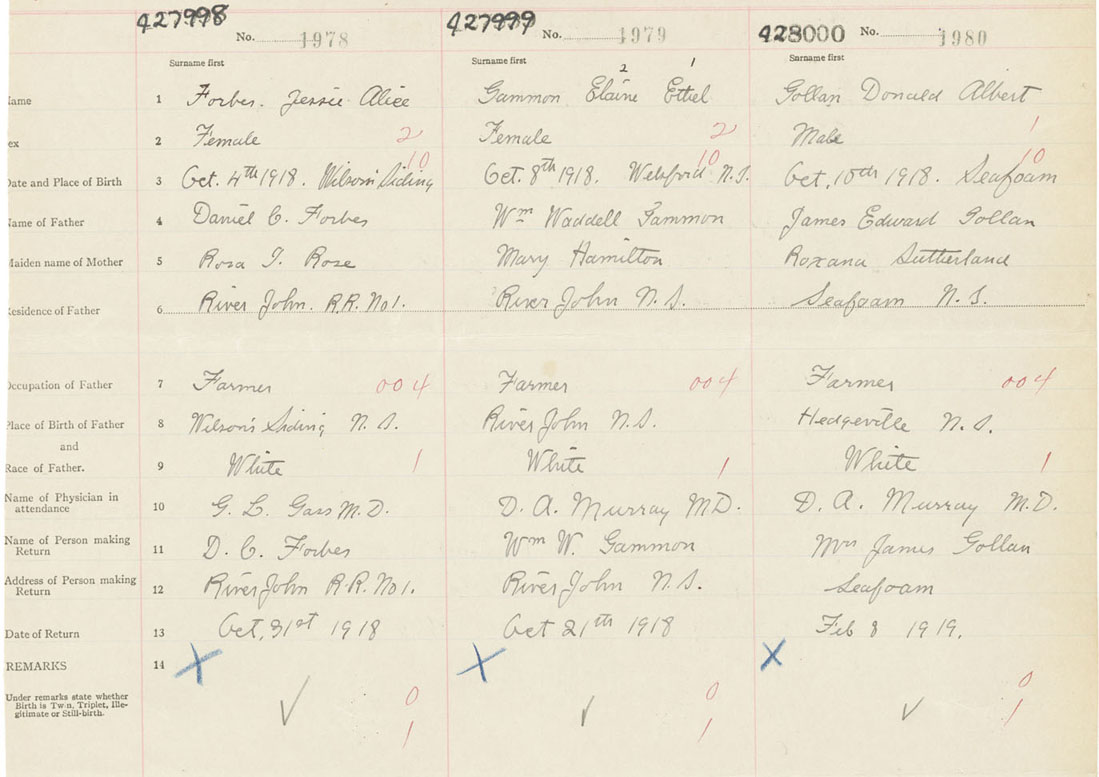 427998 No. 1978 427999 No. 1979 428000 No. 1980
Surname first Surname first Surname first
2 1
ame 1 Forbes. Jessie Alice Gammon Elaine Ethel Gollan Donald Albert
ex 2 Female 2 Female 2 Male 1
10 10 10
Date and Place of Birth 3 Oct. 4th 1918. Wilson's Siding Oct. 8th 1918. Welsford N.S. Oct. 10th 1918. Seafoam
Name of Father 4 Daniel C. Forbes Wm Waddell Gammon James Edward Gollan
Maiden name of Mother 5 Rosa J. Rose Mary Hamilton Roxana Sutherland
esidence of Father 6 River John. R.R. No 1. River John N.S. Seafoam N.S.
Occupation of Father 7 Farmer 004 Farmer 004 Farmer 004
Place of Birth of Father 8 Wilson's Siding N.S. River John N.S. Hedgeville N.S.
and
Race of Father. 9 White 1 White 1 White 1
Name of Physician in
attendance 10 G. L. Gass M.D. D. A. Murray M.D. D. A. Murray M.D.
Name of Person making
Return 11 D. C. Forbes Wm W. Gammon Mrs James Gollan
Address of Person making
Return 12 River John R.R. No 1. River John N.S. Seafoam
Date of Return 13 Oct. 31st 1918 Oct 21th 1918 Feb 8 1919.
REMARKS 14 X X X
Under remarks state whether
Birth is Twin, Triplet, Ille-
gitimate or Still-birth.
✓ 0 ✓ 0 ✓ 0
1 1 1